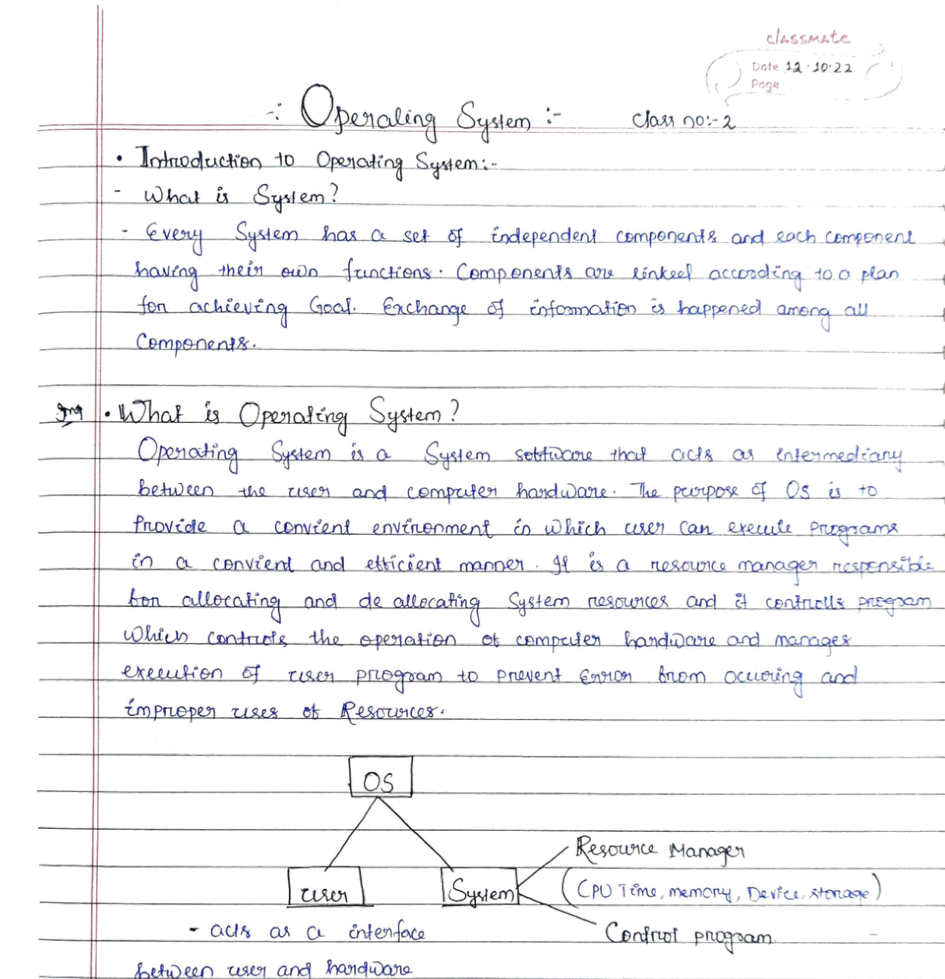 classmate
Date 12·10·22
Page
-: Operating System :-    Class no:-2
• Introduction to Operating System:-
- What is System?
- Every System has a set of independent components and each component
having their own functions. Components are linked according to a plan
for achieving Goal. Exchange of information is happened among all
Components.
Imp • What is Operating System?
Operating System is a System software that acts as intermediary
between the user and computer hardware. The purpose of OS is to
Provide a convient environment in which user can execute Programs
in a convient and efficient manner. It is a resource manager responsible
for allocating and de allocating System resources and it controlls program
Which controls the operation of computer hardware and manages
execution of user program to prevent Error from occuring and
improper uses of Resources.
OS
Resource Manager
user    System    (CPU Time, memory, Device, storage)
- acts as a interface    Control program
between user and hardware